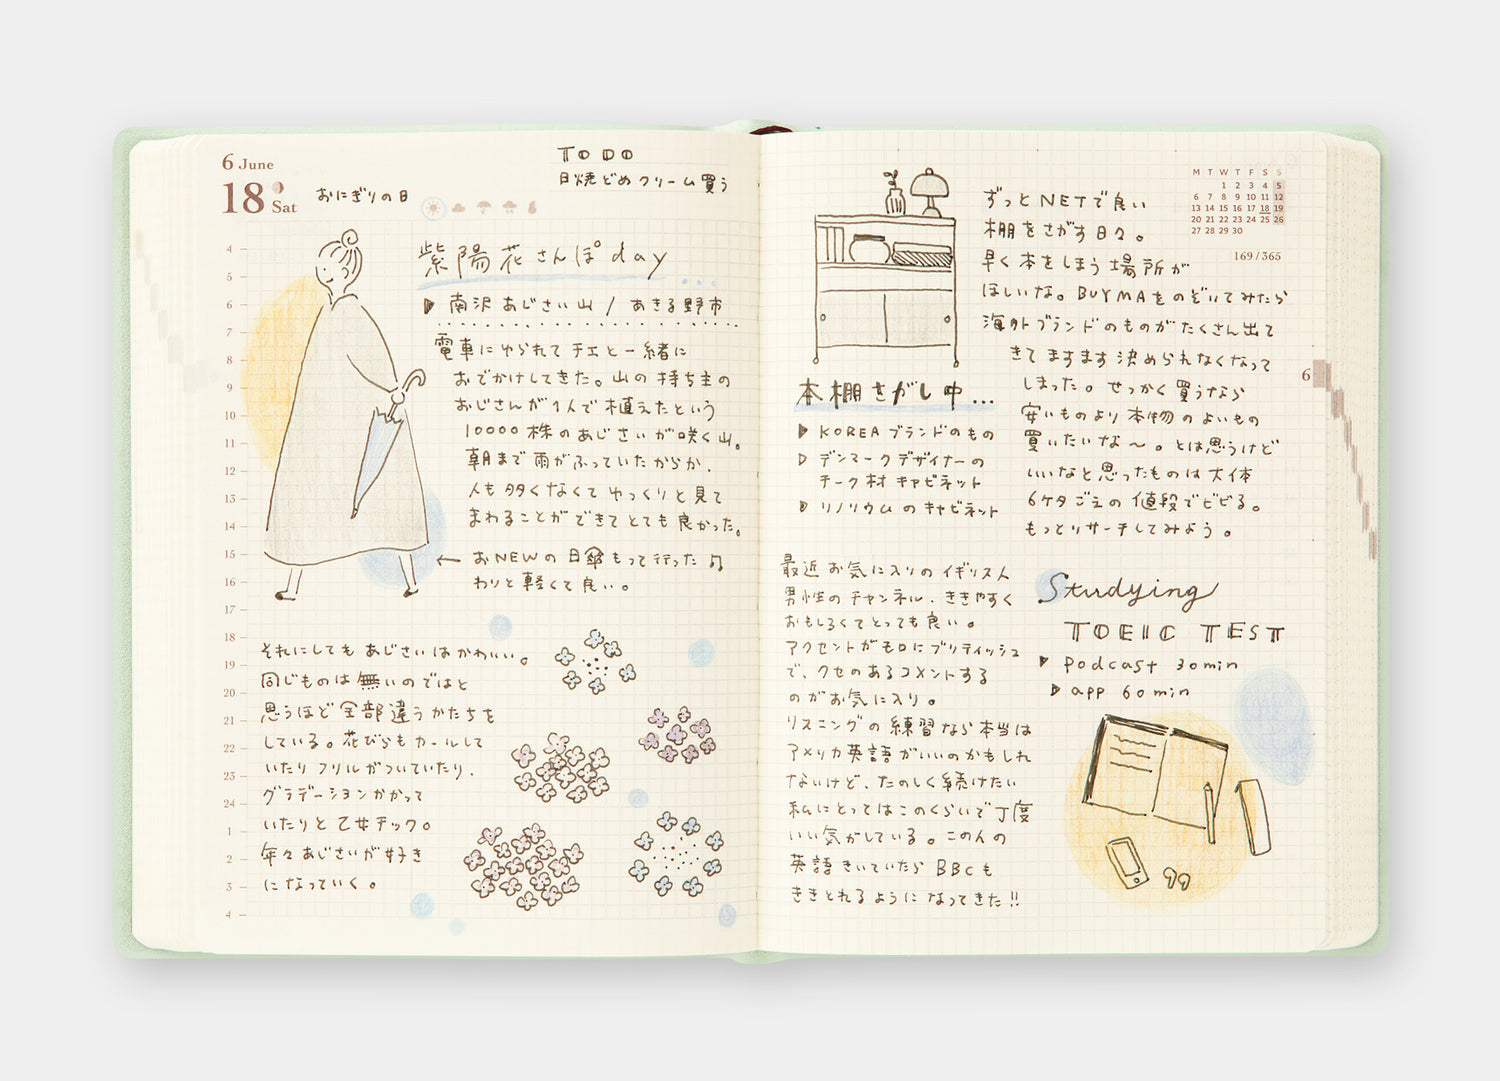 6 June
18 Sat
おにぎりの日
TO DO
日焼どめクリーム買う
紫陽花さんぽday
南沢あじさい山 / あきる野市
電車にゆられてチエと一緒に
おでかけしてきた。山の持ち主の
おじさんが1人で植えたという
10000株のあじさいが咲く山。
朝まで雨がふっていたからか、
人も多くなくてゆっくりと見て
まわることができてとても良かった。
← おNEWの日傘もって行った♫
わりと軽くて良い。
4
5
6
7
8
9
10
11
12
13
14
15
16
17
18
19
20
21
22
23
24
1
2
3
4
それにしてもあじさいはかわいい。
同じものは無いのではと
思うほど全部違うかたちを
している。花びらもカールして
いたりフリルがついていたり、
グラデーションかかって
いたりと乙女チック。
年々あじさいが好き
になっていく。
M T W T F S S
1 2 3 4 5
6 7 8 9 10 11 12
13 14 15 16 17 18 19
20 21 22 23 24 25 26
27 28 29 30
169/365
6
ずっとNETで良い
棚をさがす日々。
早く本をしまう場所が
ほしいな。BUYMAをのぞいてみたら
海外ブランドのものがたくさん出て
きてますます決められなくなって
しまった。せっかく買うなら
安いものより本物のよいもの
買いたいな〜。とは思うけど
いいなと思ったものは大体
6ケタごえの値段でビビる。
もっとリサーチしてみよう。
本棚さがし中...
KOREAブランドのもの
デンマークデザイナーの
チーク材キャビネット
リノリウムのキャビネット
最近お気に入りのイギリス人
男性のチャンネル、ききやすく
おもしろくてとっても良い。
アクセントがモロにブリティッシュ
で、クセのあるコメントする
のがお気に入り。
リスニングの練習なら本当は
アメリカ英語がいいのかもしれ
ないけど、たのしく続けたい
私にとってはこのくらいで丁度
いい気がしている。この人の
英語きいていたらBBCも
ききとれるようになってきた!!
Studying
TOEIC TEST
podcast 30min
app 60min